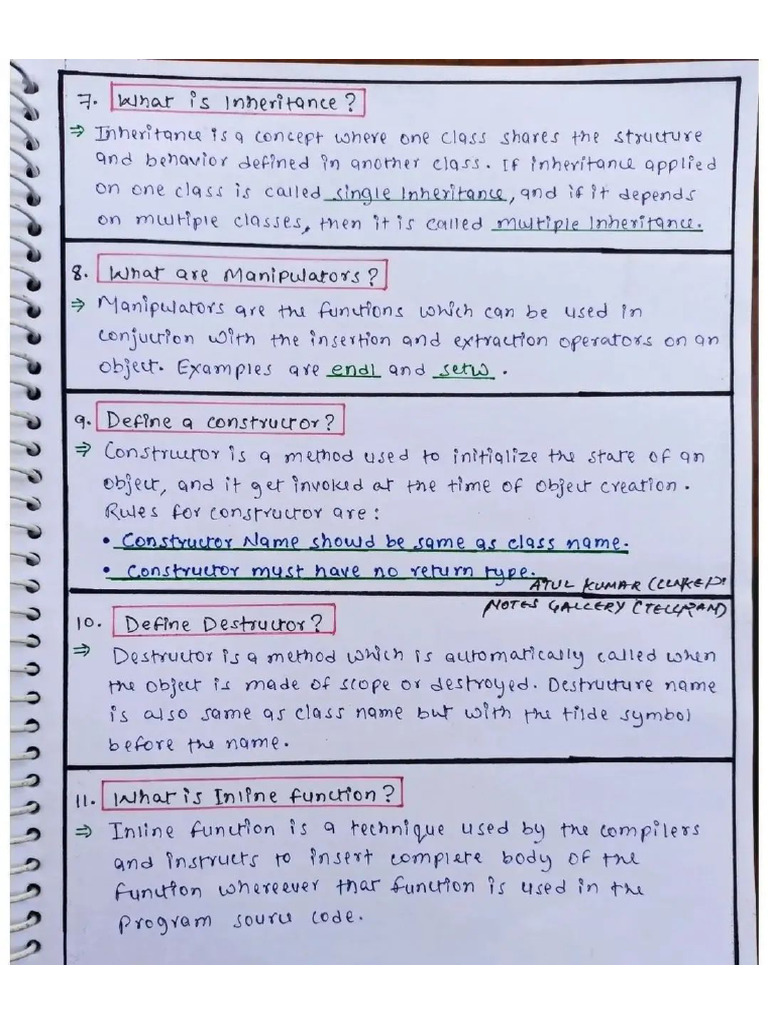 7. What is Inheritance?
⇒ Inheritance is a concept where one class shares the structure
and behavior defined in another class. If inheritance applied
on one class is called single Inheritance, and if it depends
on multiple classes, then it is called multiple Inheritance.
8. What are Manipulators?
⇒ Manipulators are the functions which can be used in
conjuction with the insertion and extraction operators on an
object. Examples are endl and setw.
9. Define a constructor?
⇒ Constructor is a method used to initialize the state of an
object, and it get invoked at the time of object creation.
Rules for constructor are:
• Constructor Name should be same as class name.
• Constructor must have no return type.
ATUL KUMAR
NOTES GALLERY
10. Define Destructor?
⇒ Destructor is a method which is automatically called when
the object is made of scope or destroyed. Destructure name
is also same as class name but with the tilde symbol
before the name.
11. What is Inline function?
⇒ Inline function is a technique used by the compilers
and instructs to insert complete body of the
function whereever that function is used in the
Program source code.